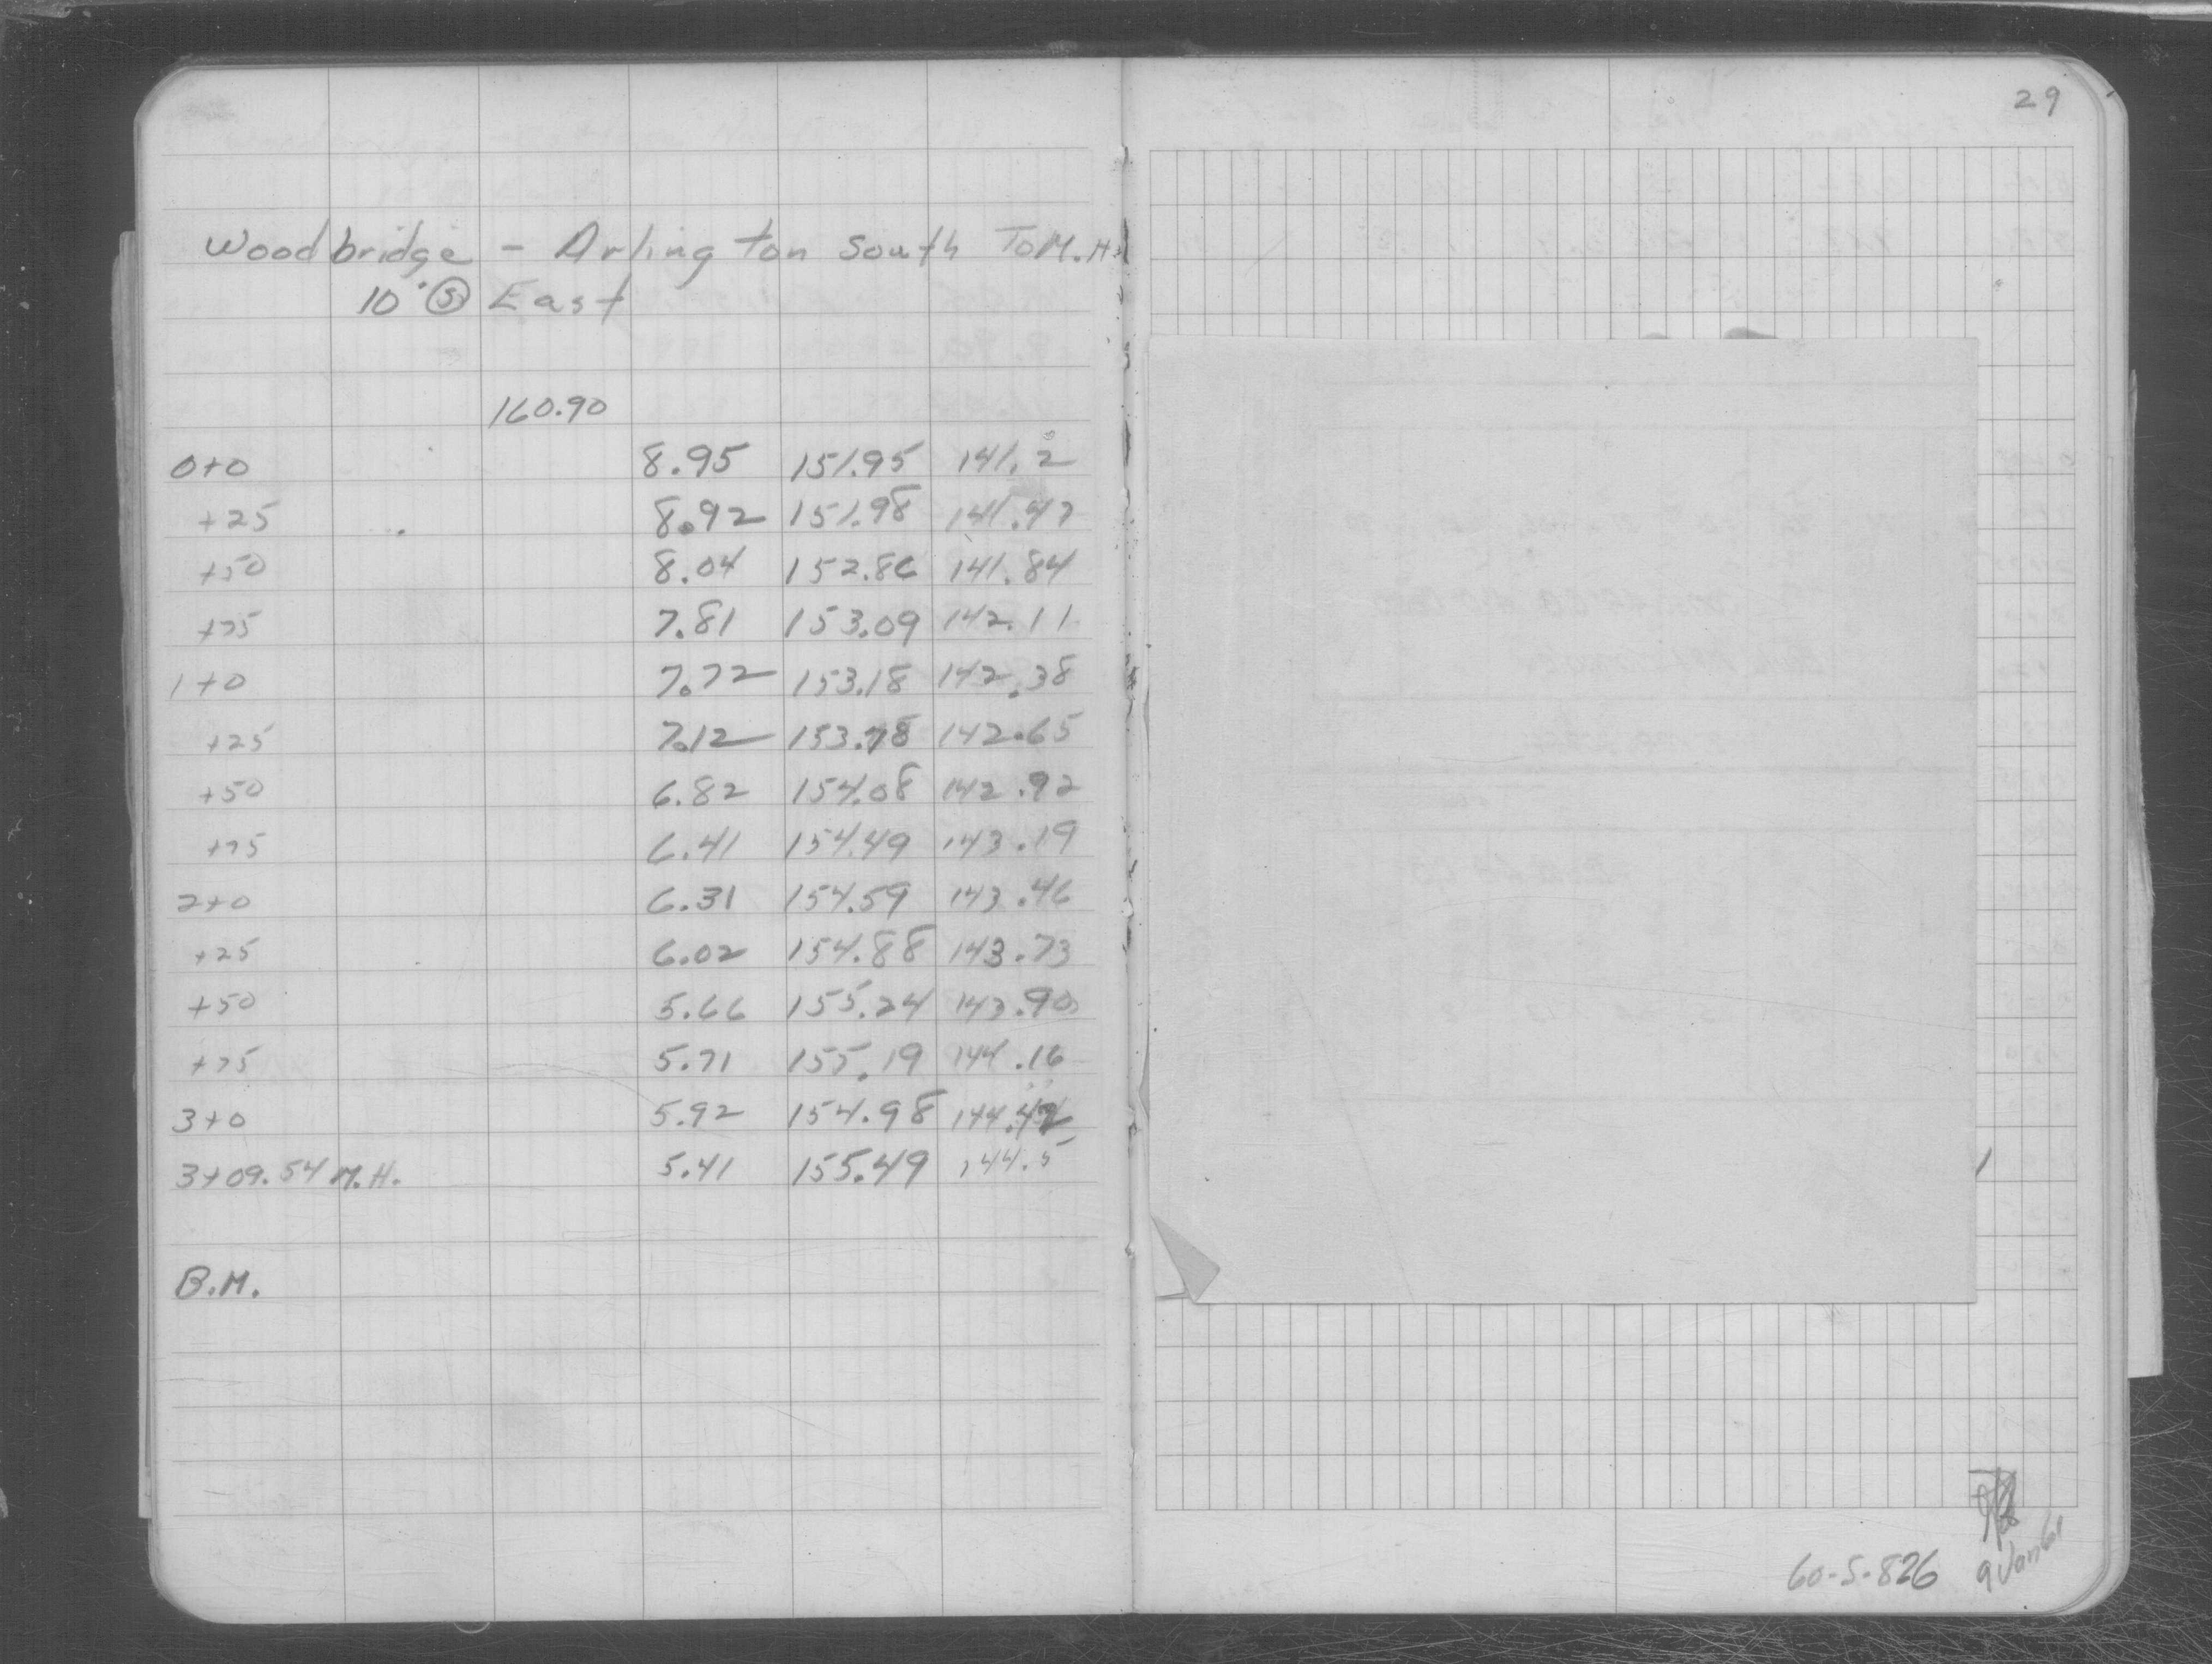 29
Woodbridge - Arlington South To M.H.
10" Ⓢ East
160.90
0+0 8.95 151.95 141.2
+25 8.92 151.98 141.47
+50 8.04 152.86 141.84
+75 7.81 153.09 142.11
1+0 7.72 153.18 142.38
+25 7.12 153.78 142.65
+50 6.82 154.08 142.92
+75 6.41 154.49 143.19
2+0 6.31 154.59 143.46
+25 6.02 154.88 143.73
+50 5.66 155.24 143.90
+75 5.71 155.19 144.16
3+0 5.92 154.98 144.42
3+09.54 M.H. 5.41 155.49 144.5
B.M.
60-S-826
9 Jan 61